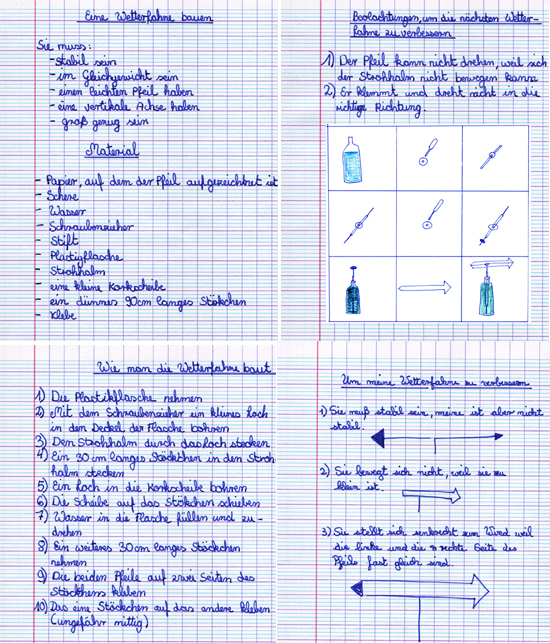 Eine Wetterfahne bauen
Sie muss:
- stabil sein
- im Gleichgewicht sein
- einen leichten Pfeil haben
- eine vertikale Achse haben
- groß genug sein
Material
- Papier, auf dem der Pfeil aufgezeichnet ist
- Schere
- Wasser
- Schraubenzieher
- Stift
- Plastigflasche
- Strohhalm
- eine kleine Korkscheibe
- ein dünnes 90cm langes Stökchen
- Klebe
Beobachtungen, um die nächsten Wetter-
fahne zu verbessern
1) Der Pfeil kann nicht drehen, weil sich
der Strohhalm nicht bewegen kann.
2) Er klemmt und dreht nicht in die
richtige Richtung.
Wie man die Wetterfahne baut
1) Die Plastikflasche nehmen
2) Mit dem Schraubenzieher ein kleines Loch
in den Deckel der Flasche bohren
3) Den Strohhalm durch das loch stecken
4) Ein 30 cm langes Stöckchen in den Stroh
halm stecken
5) Ein Loch in die Korkscheibe bohren
6) Die Scheibe auf das Stökchen schieben
7) Wasser in die Flasche füllen und zu-
drehen
8) Ein weiteres 30cm langes Stöckchen
nehmen
9) Die beiden Pfeile auf zwei Seiten des
Stöckhens kleben
10) Das eine Stöckchen auf das andere kleben
(ungefähr mittig)
Um meine Wetterfahne zu verbessern
1) Sie muß stabil sein, meine ist aber nicht
stabil.
2) Sie bewegt sich nicht, weil sie zu
klein ist.
3) Sie stellt sich senkrecht zum Wind weil
die linke und die rechte Seite des
Pfeils fast gleich sind.